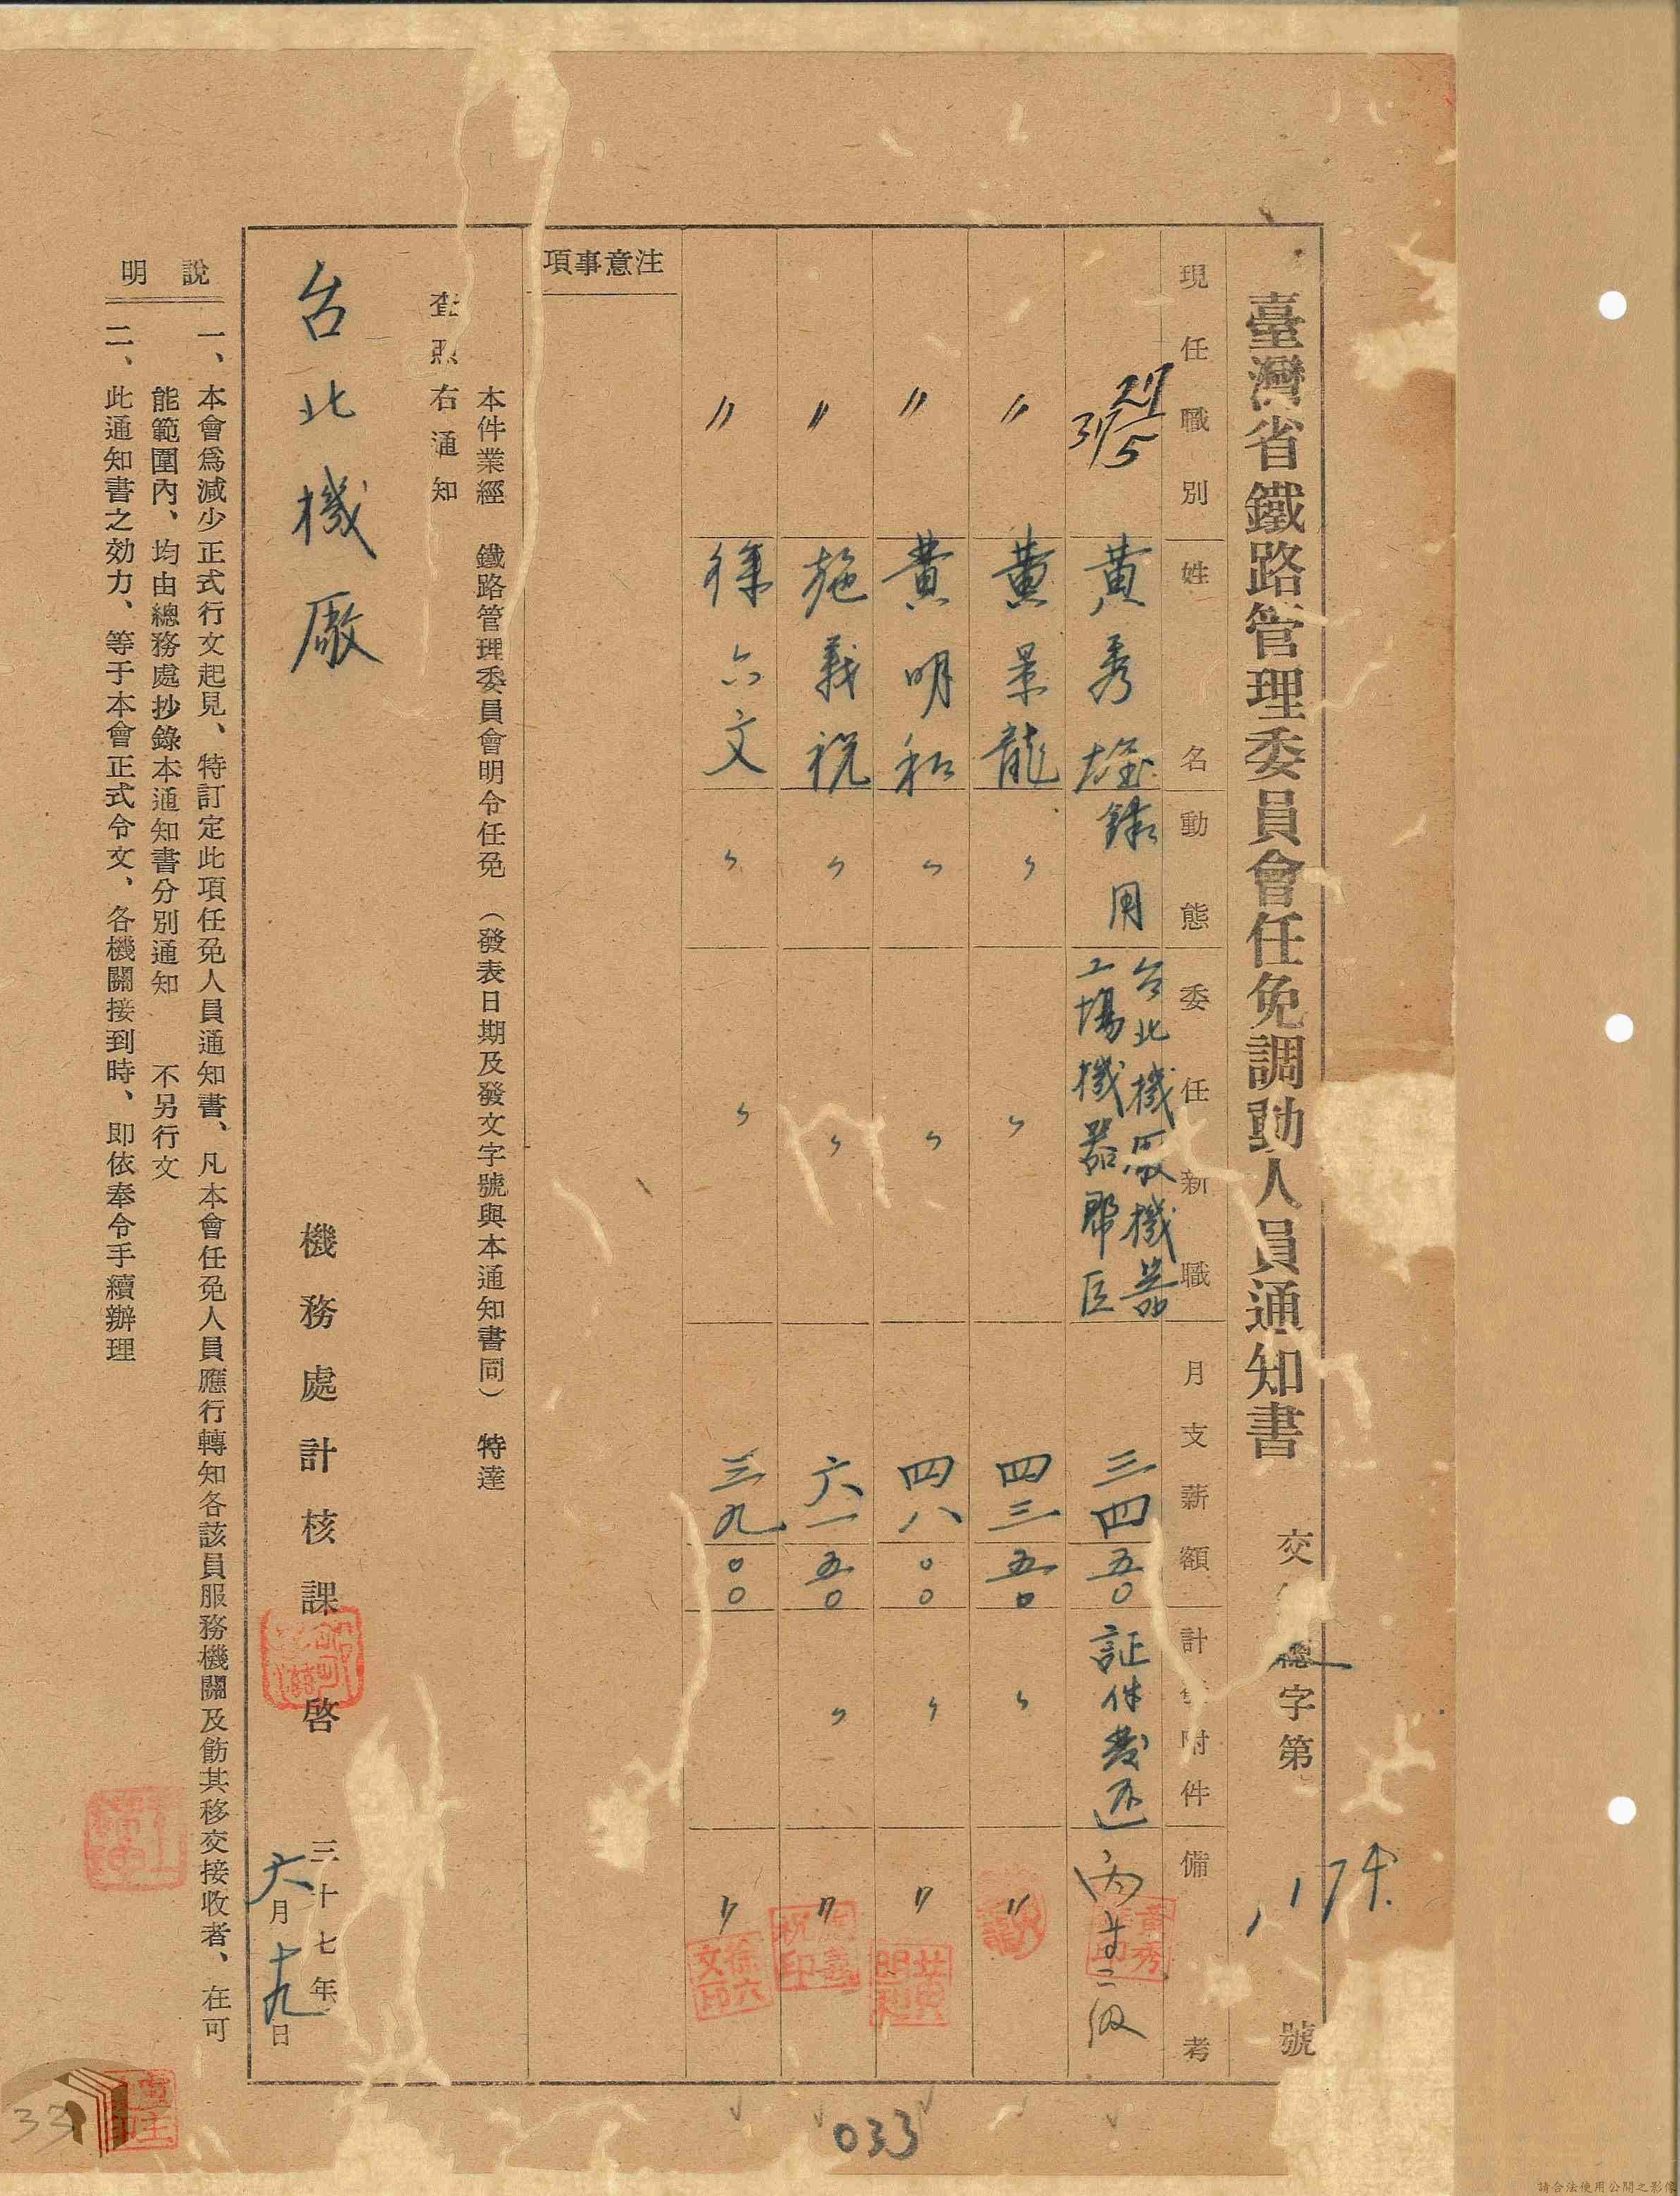 臺灣省鐵路管理委員會任免調動人員通知書
交 總字第 號
現任職別
姓名
動態
委任新職
月支薪額
計 附件
備考
黃秀雄
錄用
台北機廠機器
工場機器部匠
三四五〇
証件發還
丙
級
〃
黃景龍
〃
〃
四三五〇
〃
〃
〃
黃明和
〃
〃
四八〇〇
〃
〃
〃
施義祝
〃
〃
六一五〇
〃
〃
〃
徐六文
〃
〃
三九〇〇
〃
黃秀
黃明和
祝印
徐六文印
注意事項
本件業經 鐵路管理委員會明令任免（發表日期及發文字號與本通知書同） 特達
查照右通知
台北機廠
機務處計核課啓
三十七年
六月十九日
說明
一、本會爲減少正式行文起見、特訂定此項任免人員通知書、凡本會任免人員應行轉知各該員服務機關及飭其移交接收者、在可
能範圍內、均由總務處抄錄本通知書分別通知 不另行文
二、此通知書之効力、等于本會正式令文、各機關接到時、即依奉令手續辦理
033
33
請合法使用公開之影像